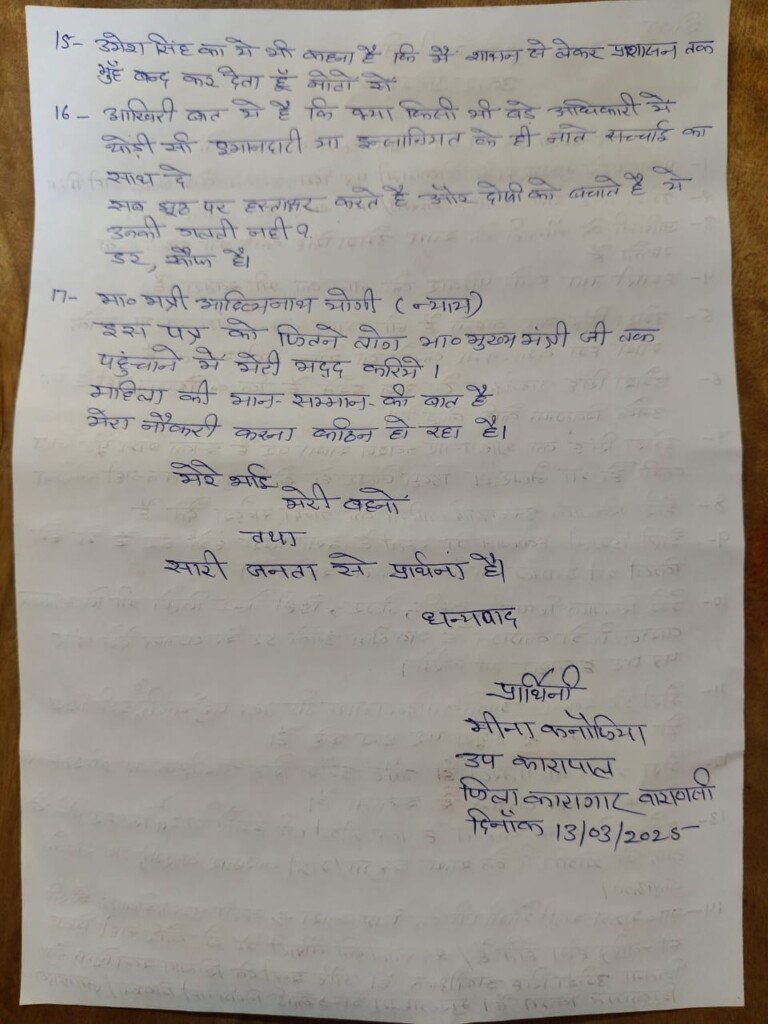 15- उमेश सिंह का ये भी कहना है कि मैं शासन से लेकर प्रशासन तक
मुँह बन्द कर देता हूँ नोटो से
16- आखिरी बात ये है कि क्या किसी भी बडे अधिकारी में
थोड़ी सी इमानदारी या इन्सानियत के ही नाते सच्चाई का
साथ दे
सब झूठ पर हस्ताक्षर करते है और दोषी को बचाते है ये
उनकी गलती नही ?
डर, खौफ है।
17- मा० मंत्री आदित्यनाथ योगी (न्याय)
इस पत्र को जितने लोग मा० मुख्य मंत्री जी तक
पहुंचाने में मेरी मदद करिये ।
महिला की मान-सम्मान-की बात है
मेरा नौकरी करना कठिन हो रहा है।
मेरे भाई
मेरी बहनों
तथा
सारी जनता से प्रार्थना है।
धन्यवाद
प्रार्थिनी
मीना कनौजिया
उप कारापाल
जिला कारागार वाराणसी
दिनाँक 13/03/2025